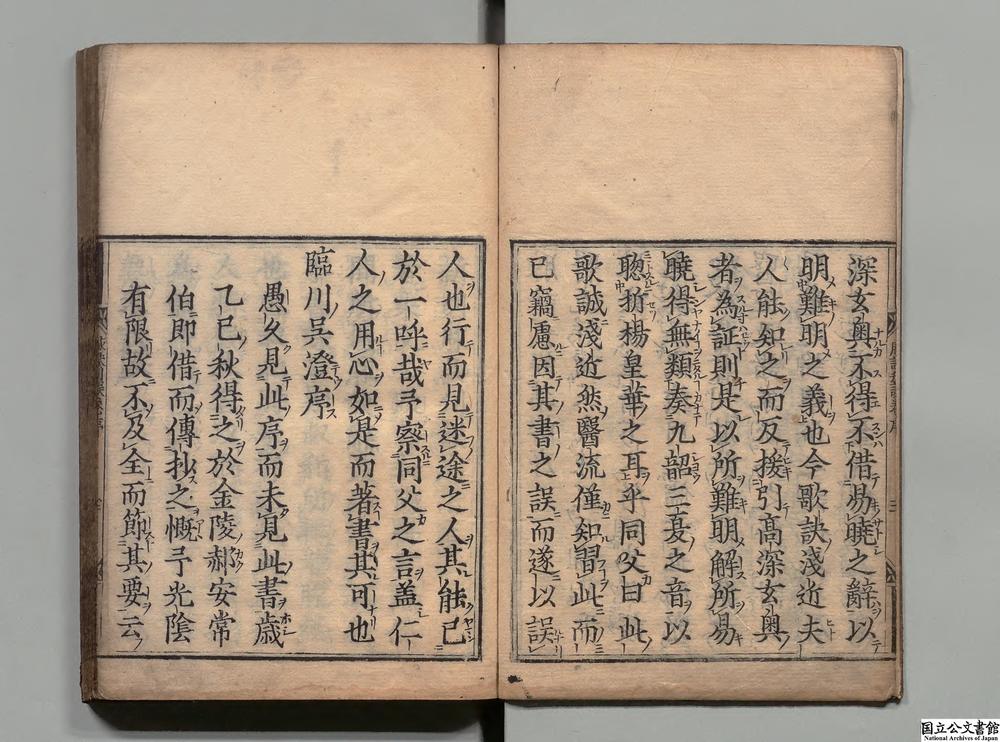 深玄奥不得不借易曉之辭以
明難明之義也今歌訣淺近夫
人能知之而反援引高深玄奥
者為証則是以所難明解所易
曉得無類奏九韶三夏之音以
聰折楊皇華之耳乎同父曰此
歌誠淺近然醫流僅知習此而
已竊慮因其書之誤而遂以誤
人也行而見迷途之人其能已
於一呼哉予察同父之言盖仁
人之用心如是而著書其可也
臨川呉澄序
愚久見此序而未見此書歳
乙巳秋得之於金陵郝安常
伯即借而傳抄之慨予光陰
有限故不及全而節其要云
国立公文書館
National Archives of Japan